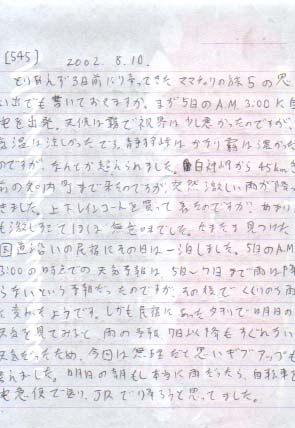 [545] 2002. 8.10.
とりあえず3日前に帰ってきたママチャリの旅5の思
い出でも書いておきますか。まず5日のA.M. 3:00に自
宅を出発。天候は霧で視界は少し悪かったのですが、
気温は涼しかったです。峠はかなり霧は濃かった
のですが、なんとか越えられました。自宅から45km
前の町まで来たのですが、突然激しい雨が降って
きました。上下レインコートを買って着たのですが、あまり
も激しすぎてほぼ無意味でした。たまたま見つけた
国道沿いの民宿にその日は一泊しました。5日のA.M
3:00の時点での天気予報は5日〜7日まで雨は降
らないという予報だったのですが、その後でくもりの雨
に変わったようです。しかも民宿にあったTVで明日の
天気を見てみると、雨の予報。7日以降もすぐれない
天気だったため、今回は無理だと思いギブアップも
考えました。明日の朝も本当に雨だったら、自転車を
宅急便で送り、JRで帰ろうと思ってました。